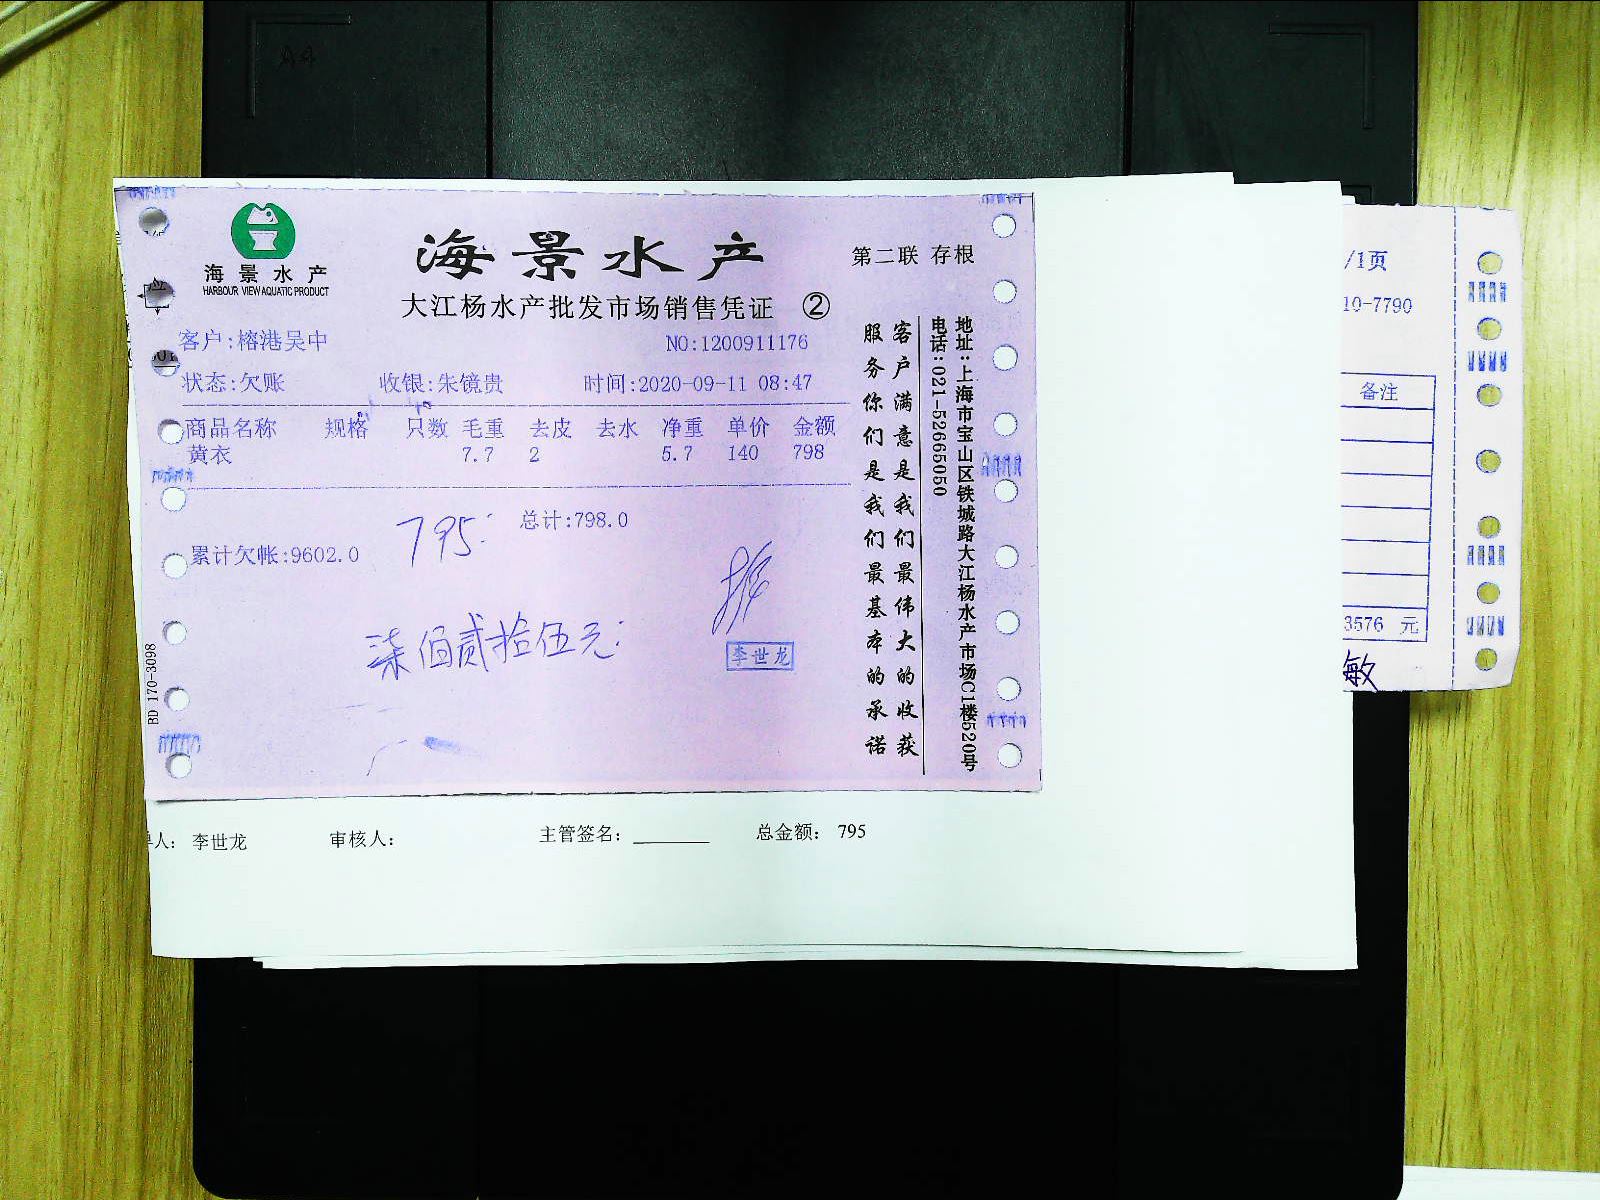 海景水产
HARBOUR VIEW AQUATIC PRODUCT
海景水产
第二联 存根
大江杨水产批发市场销售凭证 ②
客户:榕港吴中
NO:1200911176
状态:欠账 收银:朱镜贵 时间:2020-09-11 08:47
商品名称 规格 只数 毛重 去皮 去水 净重 单价 金额
黄衣 7.7 2 5.7 140 798
795.
总计:798.0
累计欠帐:9602.0
柒佰贰拾伍元
李世龙
客户满意是我们最伟大的收获
服务你们是我们最基本的承诺
地址:上海市宝山区铁城路大江杨水产市场C1楼520号
电话:021-52665050
BD 170-3098
人: 李世龙 审核人: 主管签名: 总金额: 795
/1页
10-7790
备注
3576 元
敏
A4